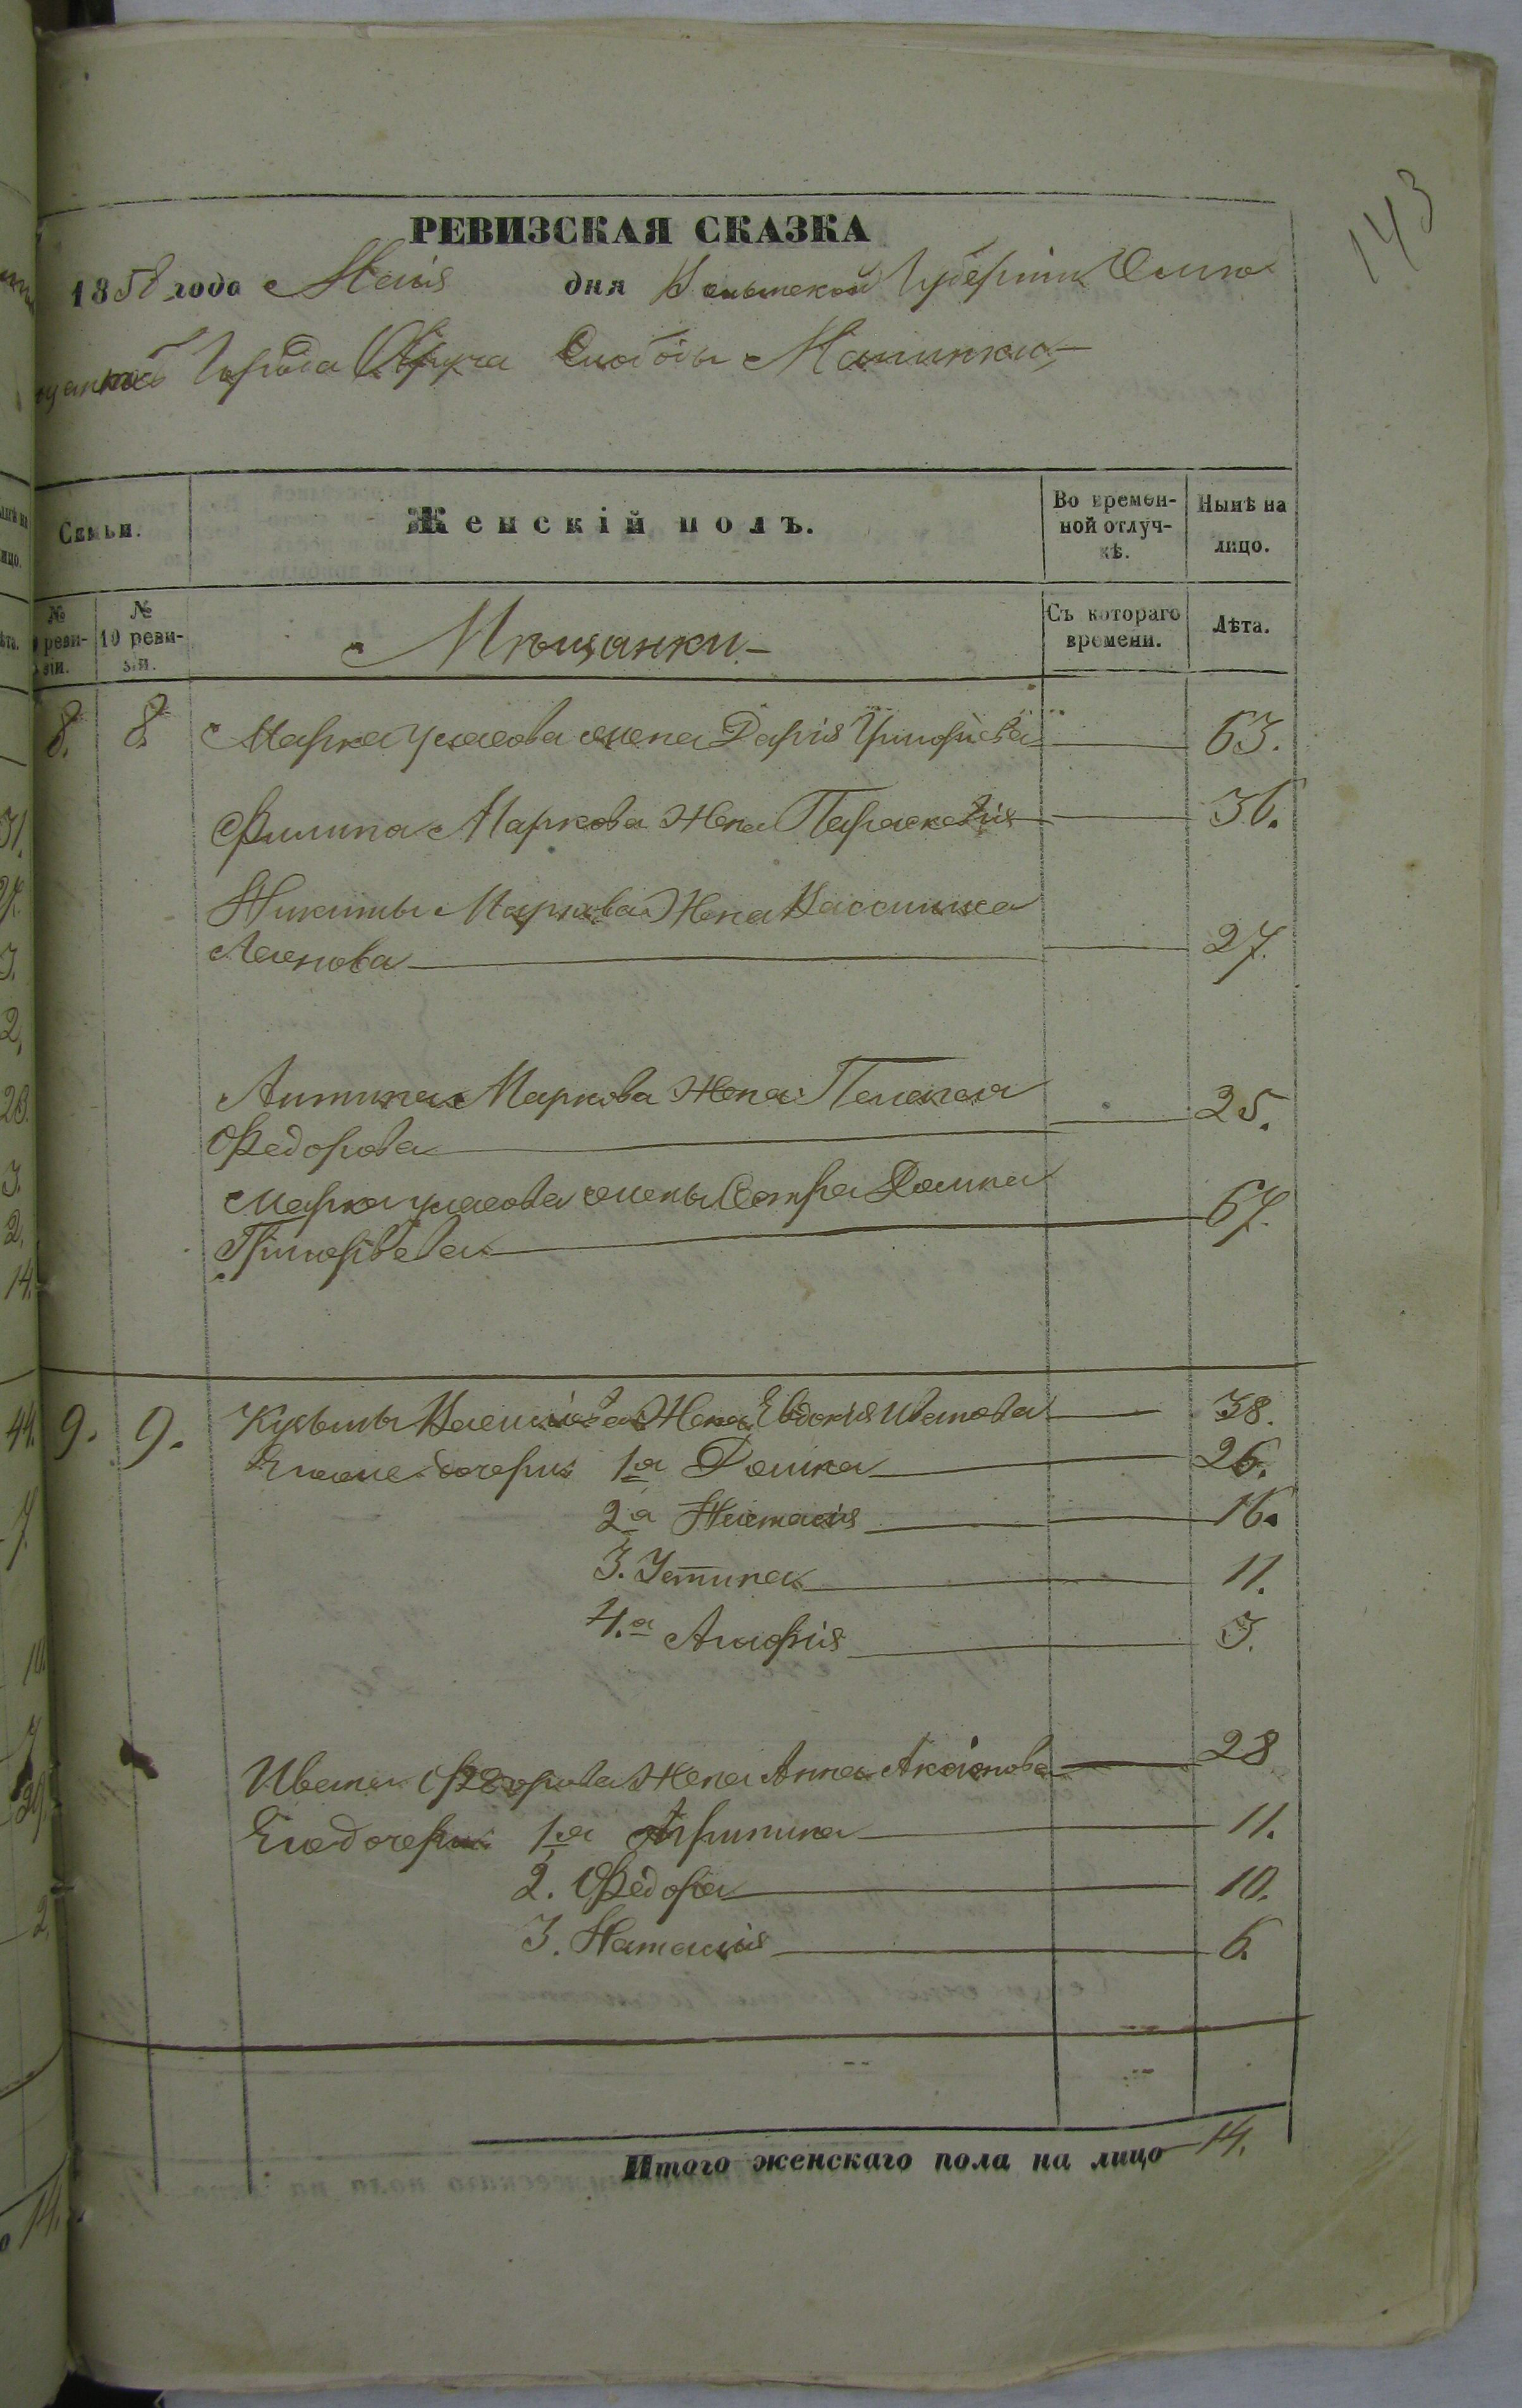 143
РЕВИЗСКАЯ СКАЗКА
1858 года Маія дня Волынской Губерніи
Города Овруча Слободы
Семьи. Женскій полъ. Во времен-ной отлуч-кѣ. Ныне на лицо.
№ реви-зіи. № 10 реви-зіи. Мѣщанки Съ котораго времени. Лѣта.
8. 8. Марка жена Дарія Григорьева 63.
Филипа Маркова Жена Параскевія 36.
Никиты Маркова Жена Вассилиса 27.
Антипа Маркова Жена Пелагея
Федорова 25.
Марка жены Сестра Домна
Григорьева 67.
9. 9. Кузьмы Жена Евдокія Иванова 38.
дочери 1а Домна 26.
2а Настасія 16.
3. Устина 11.
4.а Агафія 3.
Ивана Федорова Жена Анна Аксіонова 28
Его дочери 1а Агрипина 11.
2. Федора 10.
3. Наталія 6.
Итого женскаго пола на лицо 14.